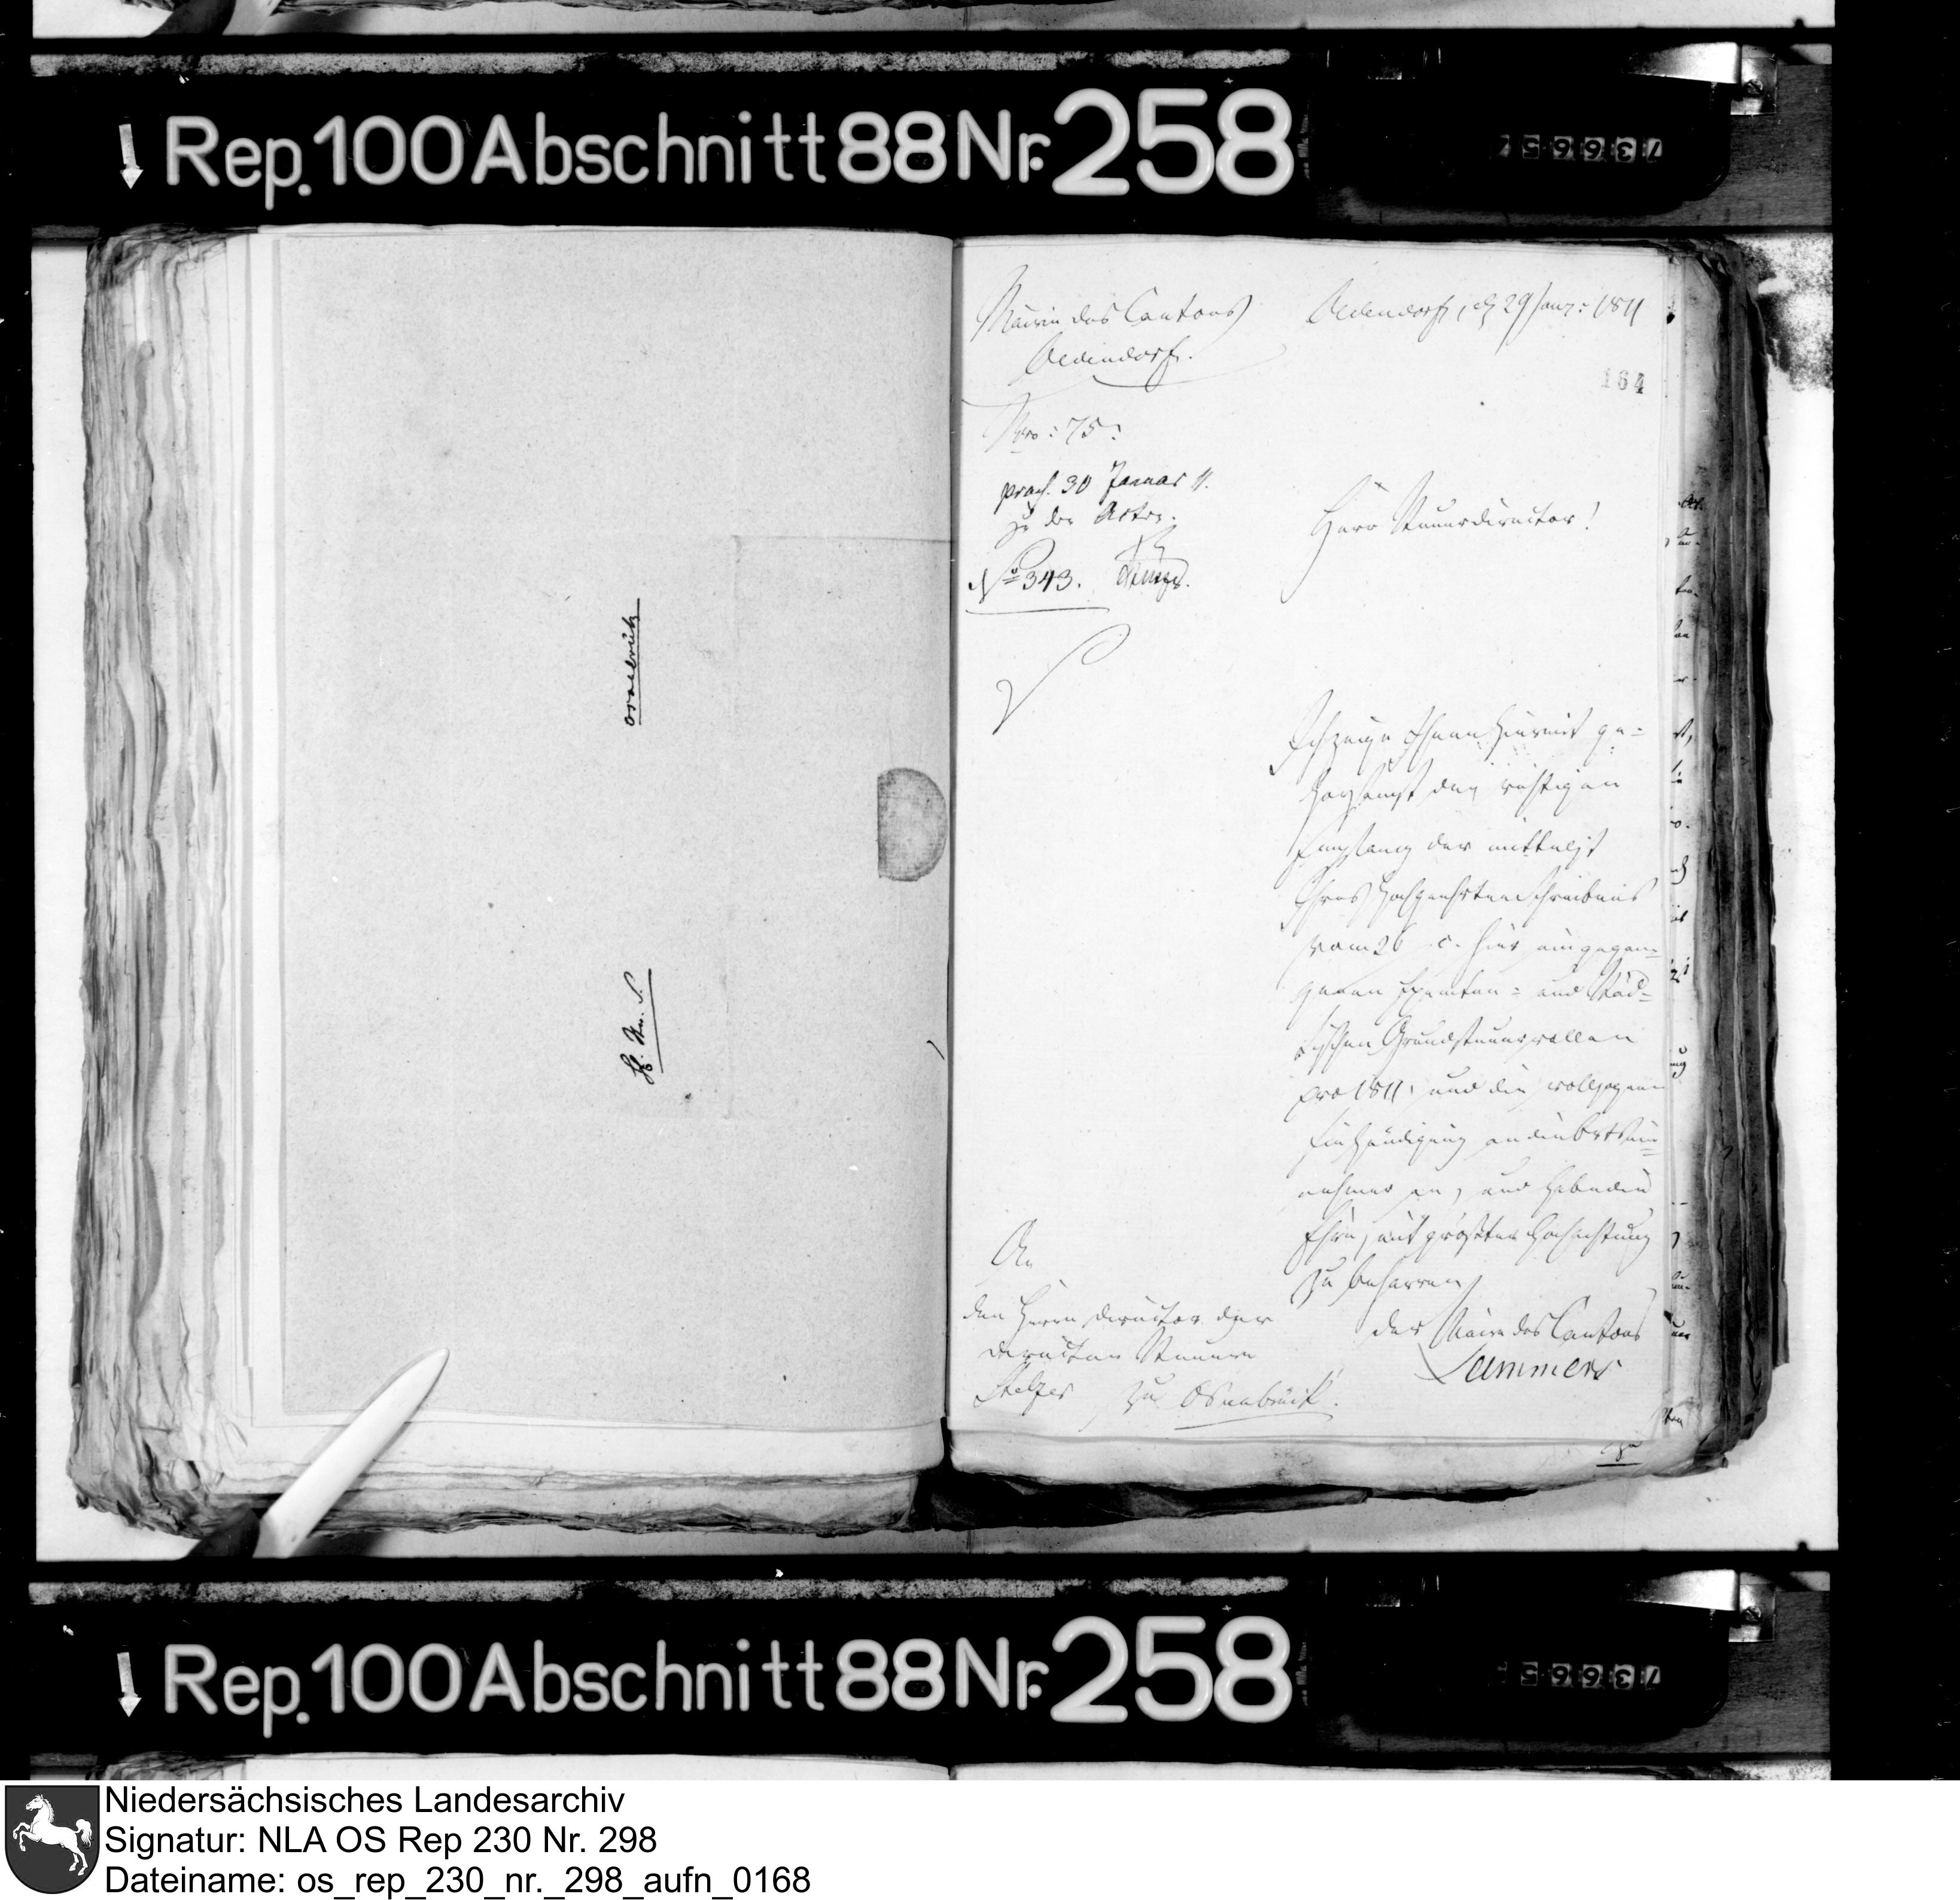 Rep. 100 Abschnitt 88 Nr. 258
73665
Osnabrück
H. St. S.
Mairie des Cantons
Oldendorf.
Oldendorf, d 29 Janr: 1811
164
Nro: 75.
praes. 30 Januar 11.
zu den Acten.
No 343.
Herr Steuerdirector!
Ich zeige Ihnen hiermit ge-
horsamst den richtigen
Empfang der mittelst
Ihres hochgeehrten Schreibens
vom 26 c. hier eingegan-
genen Exemten- und Städ-
tischen Grundsteuerrollen
pro 1811. und die vollzogene
Einhändigung an die Ortsein-
nehmer an, und habe die
Ehre, mit größter Hochachtung
zu beharren,
der Maire des Cantons
Lammers
An
den Herrn Director der
directen Steuern
Stelzer zu Osnabrück.
Rep. 100 Abschnitt 88 Nr. 258
73665
Niedersächsisches Landesarchiv
Signatur: NLA OS Rep 230 Nr. 298
Dateiname: os_rep_230_nr._298_aufn_0168